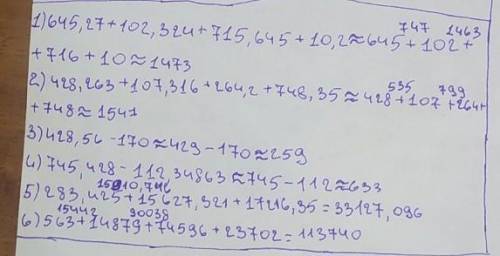 747 1463
1) 645,27+102,324+715,645+10,2≈645+102+
+716+10≈1473
535 799
2) 428,263+107,316+264,2+748,35≈428+107+264+
+748≈1541
3) 428,56-170≈429-170≈259
4) 745,428-112,34863≈745-112≈633
15910,746
5) 283,425+15627,321+17216,35=33127,096
15442 90038
6) 563+14879+74596+23702=113740